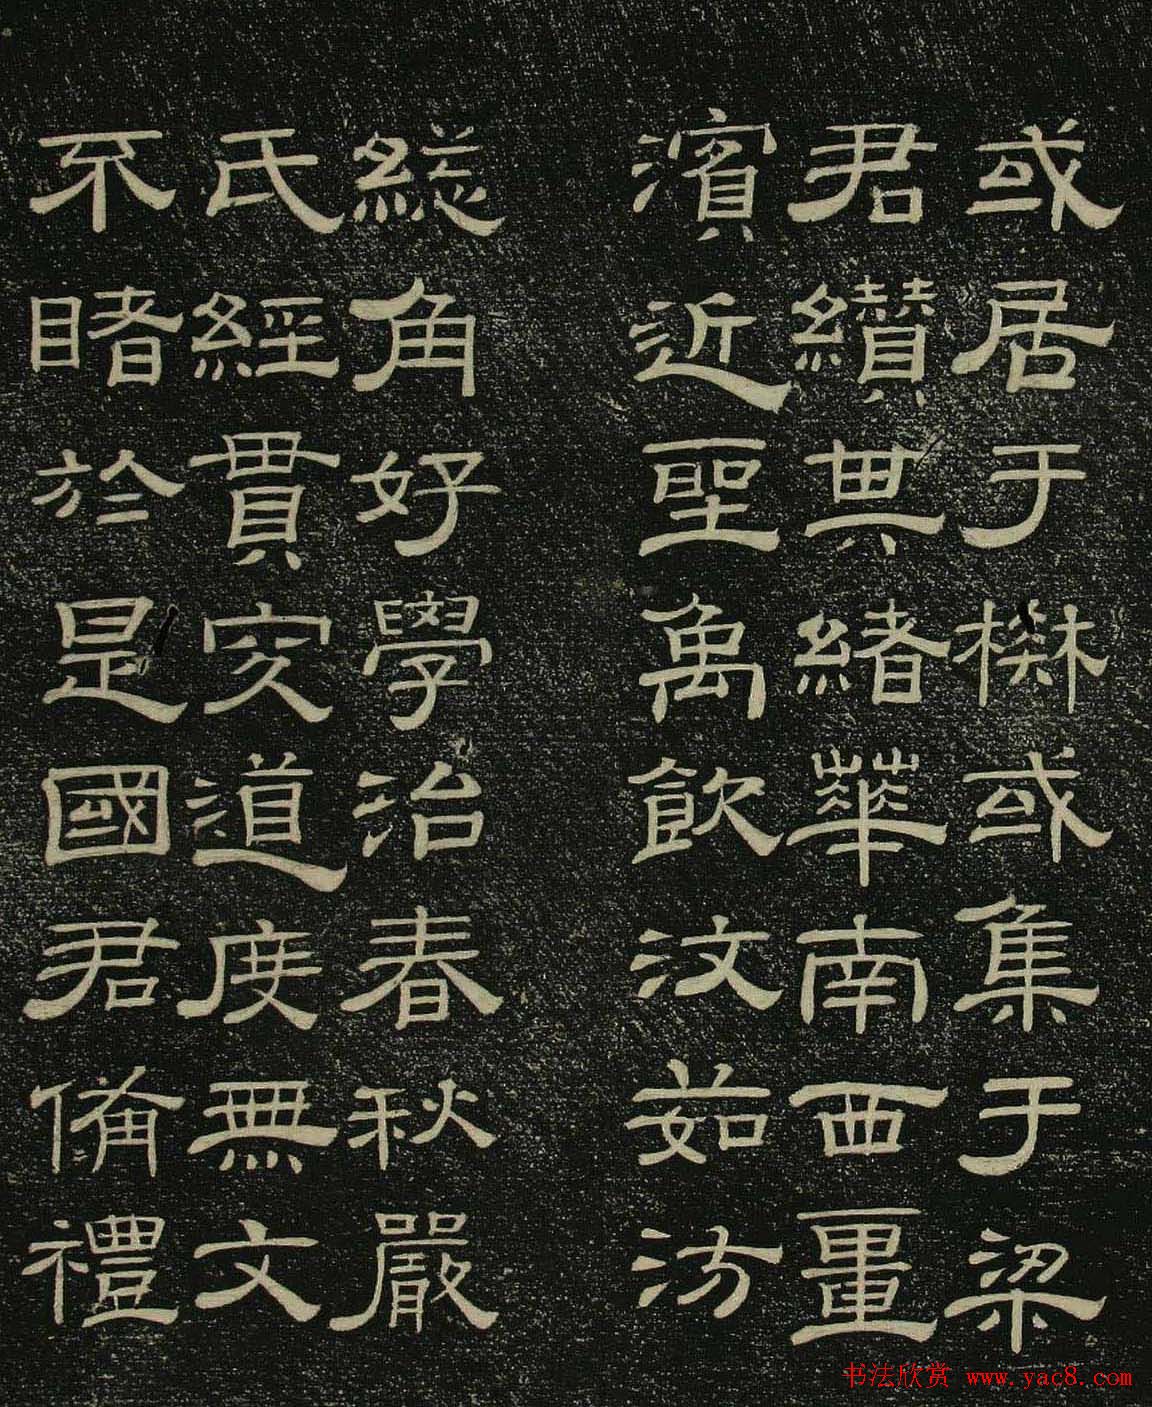 或居于樊或集于梁
君纘其緒華南西畺
濱近聖禹飲汶茹汸
總角好學治春秋嚴
氏經貫究道度無文
不睹於是國君備禮
书法欣赏 www.yac8.com